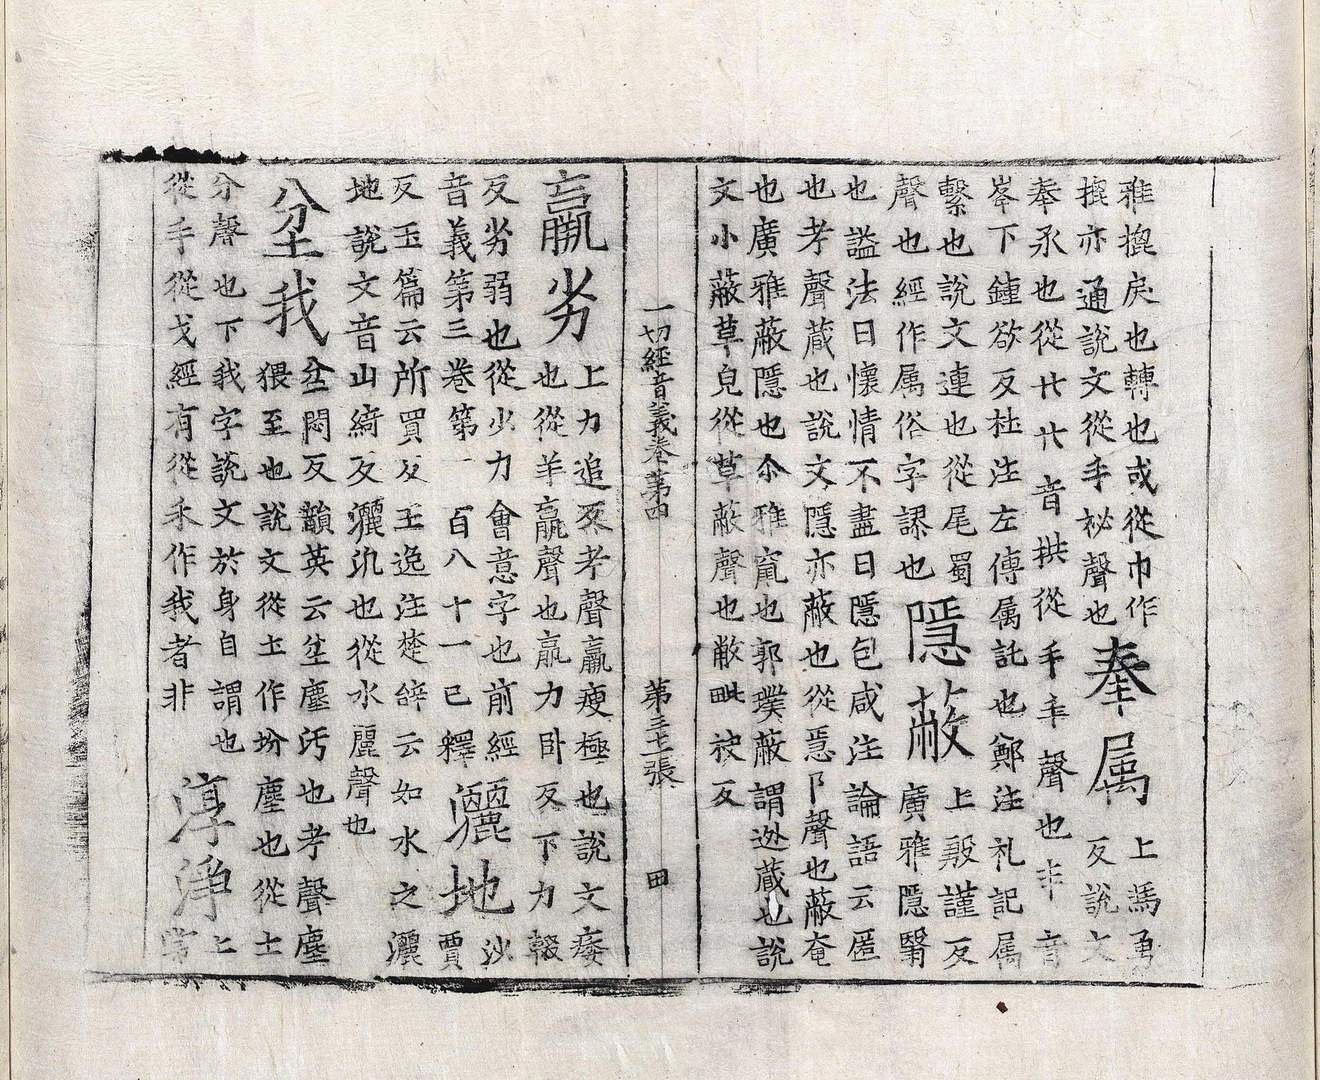 雅捩戾也轉也或從巾作
捩亦通說文從手祕聲也
奉属
上馮勇
反說文
奉承也從廾廾音拱從手丰聲也丰音
峯下鍾欲反杜注左傳属託也鄭注礼記属
繫也說文連也從尾蜀
聲也經作属俗字謬也
隱蔽
上殷謹反
廣雅隱翳
也謚法曰懷情不盡曰隱包咸注論語云匿
也考聲蔵也說文隱亦蔽也從㥯阝聲也蔽奄
也廣雅蔽隱也尒雅竄也郭璞蔽謂迯蔵也說
文小蔽草皃從草蔽聲也敝毗袂反
一切經音義卷第四 第三七張 田
羸劣
上力追反考聲羸瘦極也說文痿
也從羊𦝠聲也𦝠力卧反下力輟
反劣弱也從少力會意字也前經
音義第三卷第一百八十一已釋
灑地
沙
賈
反玉篇云所買反王逸注楚辞云如水之灑
地說文音山綺反灑汛也從水麗聲也
坌我
坌悶反韻英云坌塵汚也考聲塵
猥至也說文從土作坋塵也從土
分聲也下我字說文於身自謂也
從手從戈經有從禾作我者非
淳淨
上
常